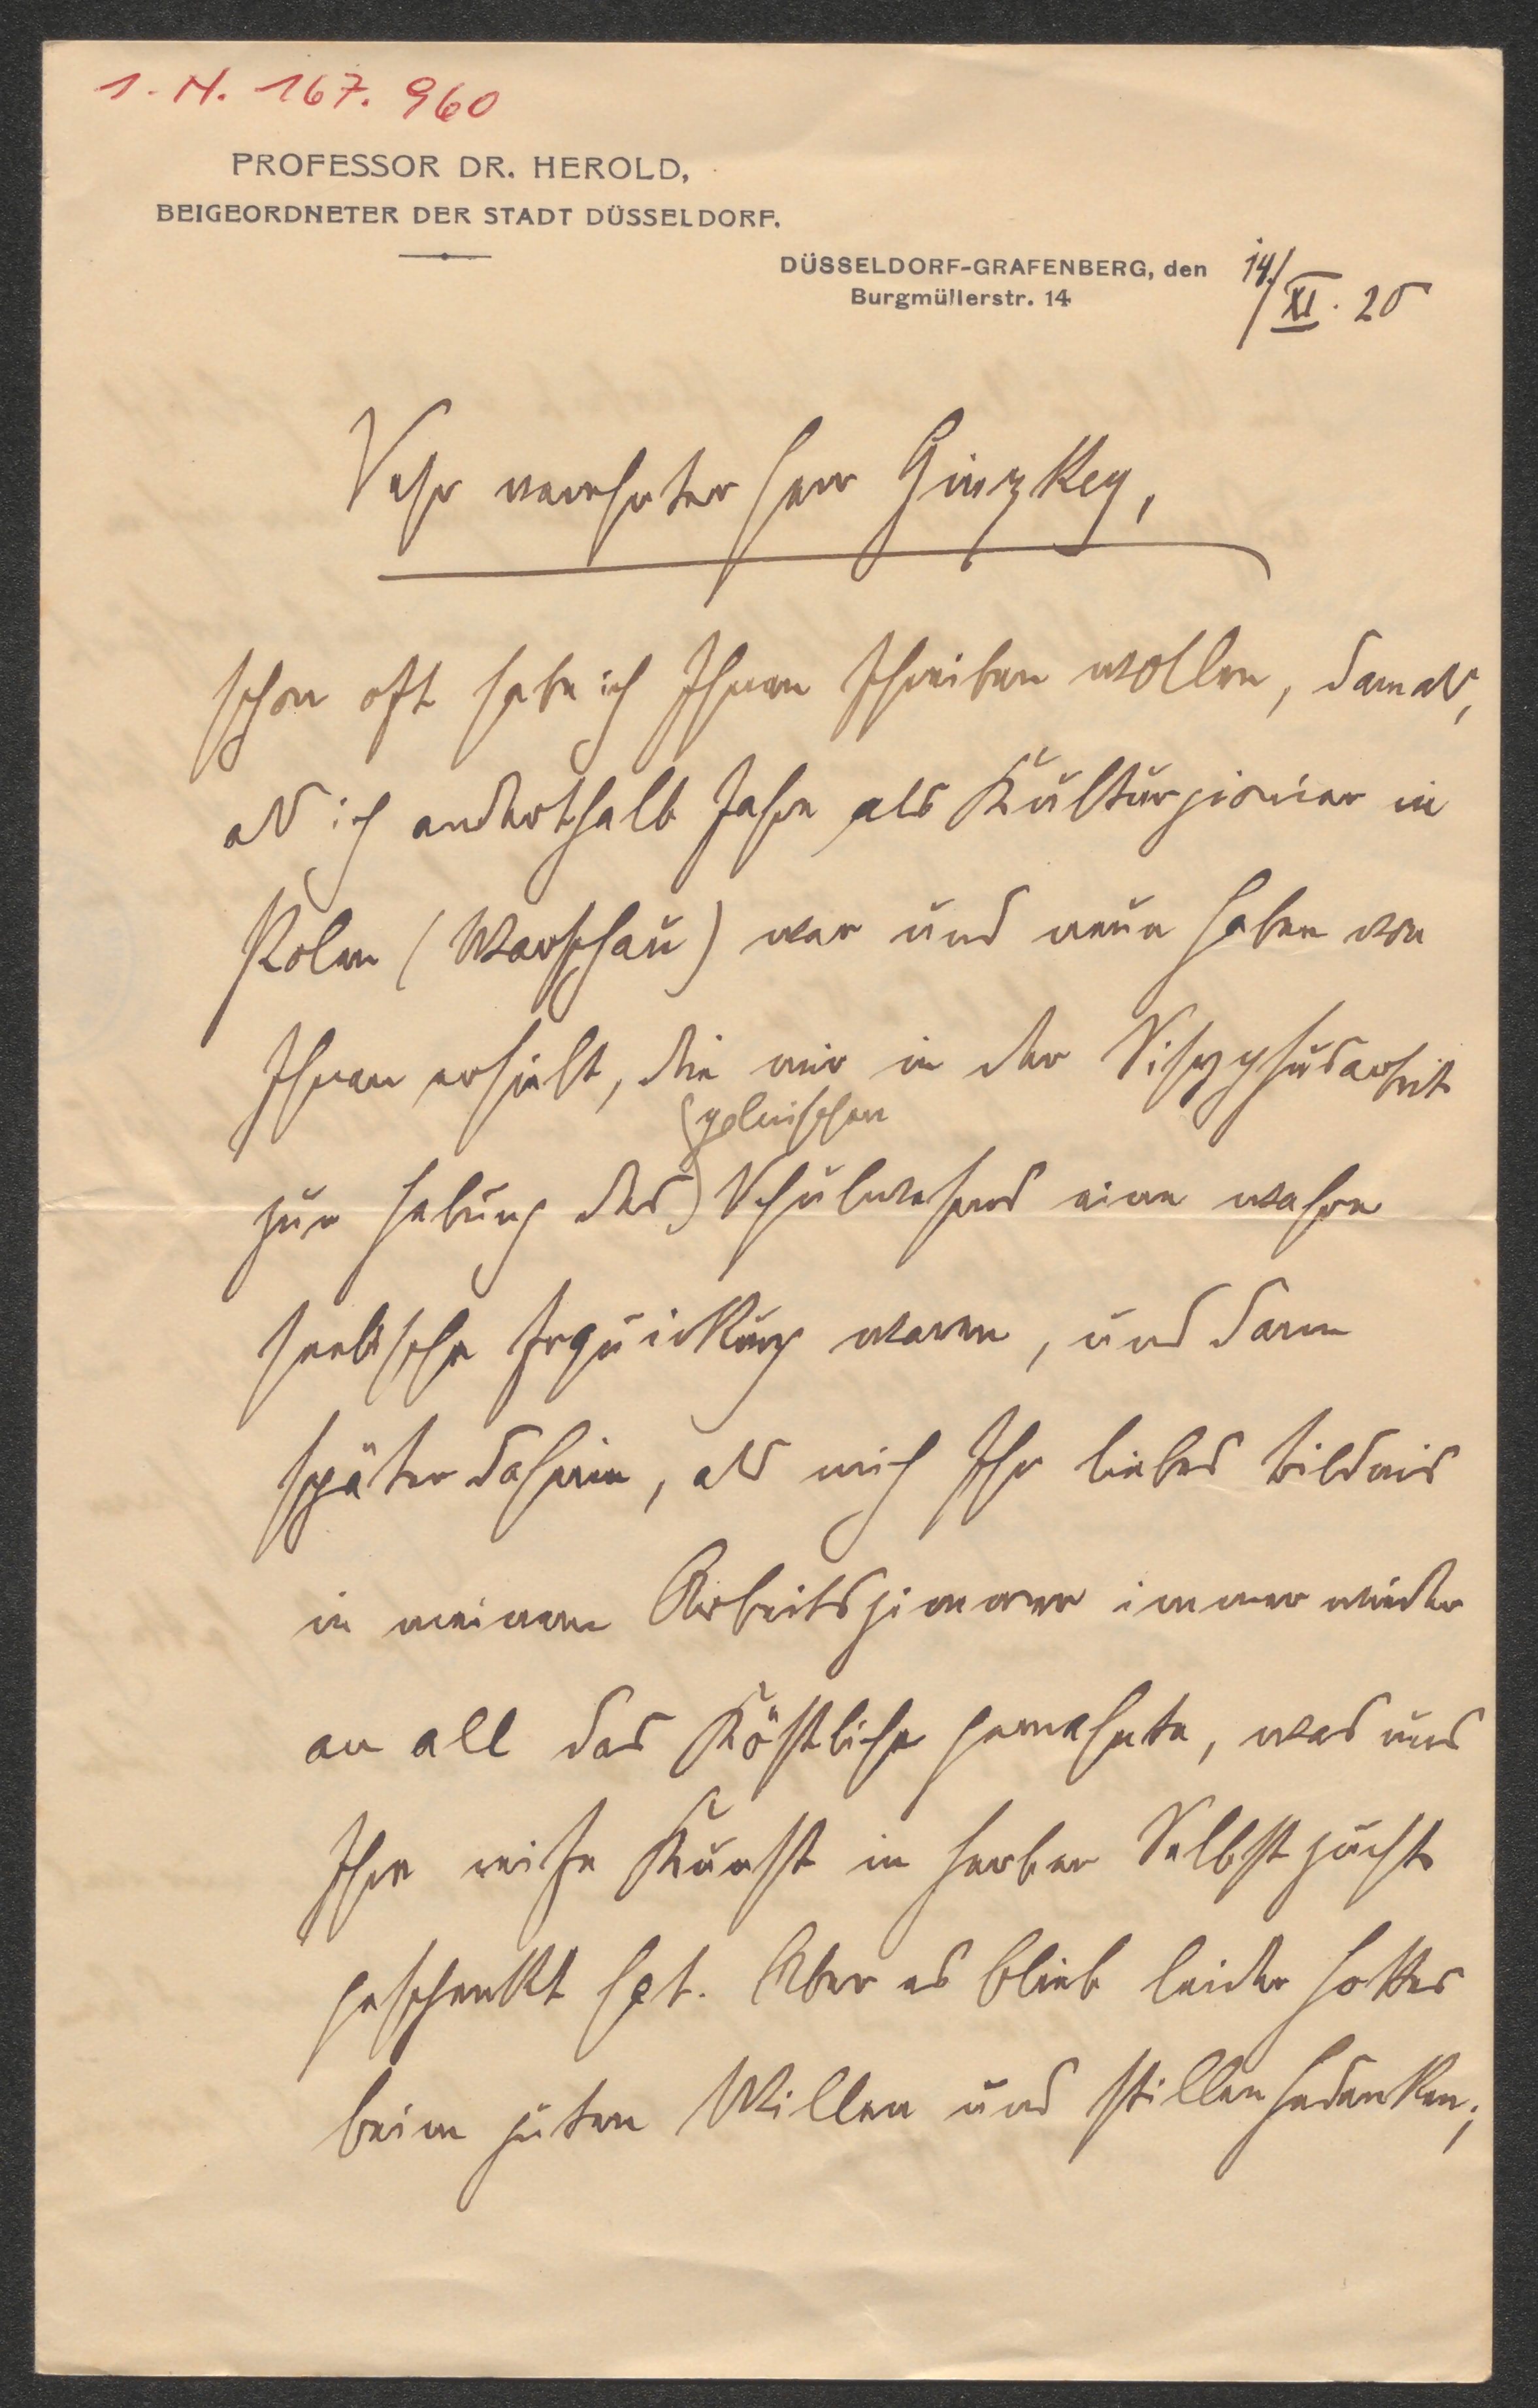 I. N. 167.960
PROFESSOR DR. HEROLD,
BEIGEORDNETER DER STADT DÜSSELDORF.
DÜSSELDORF-GRAFENBERG, den 14./XI. 20
Burgmüllerstr. 14
Sehr verehrter Herr Ginzkey,
schon oft habe ich Ihnen schreiben wollen, damals,
als ich anderthalb Jahre als Kulturpionier in
Polen (Warschau) war und neue Gaben von
Ihnen erhielt, die mir in der Sisyphusarbeit
polnischen
zur Hebung des Schulwesens eine wahre
seelische Erquickung waren, und dann
später daheim, als mich Ihr liebes Bildnis
in meinem Arbeitszimmer immer wieder
an all das Köstliche gemahnte, was uns
Ihre reife Kunst in herber Selbstzucht
geschenkt hat. Aber es blieb leider
beim guten Willen und stillen Gedanken;